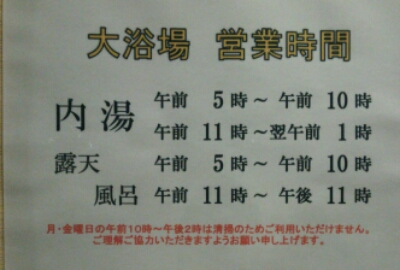 大浴場 営業時間
内湯 午前 5時～ 午前 10時
午前 11時～翌午前 1時
露天 午前 5時～ 午前 10時
風呂 午前 11時～ 午後 11時
月・金曜日の午前10時～午後2時は清掃のためご利用いただけません。
ご理解ご協力いただきますようお願い申し上げます。